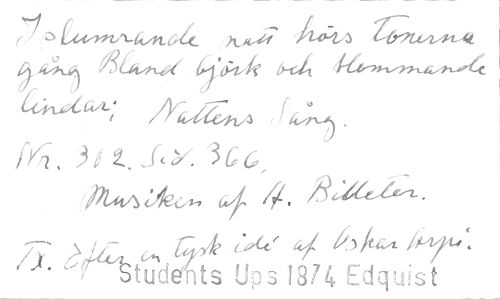 I slumrande natt hörs tonerna
gång Bland björk och blommande
lindar; Nattens Sång.
Nr. 312. Sid. 366,
Musiken af A. Billeter.
Tx. Efter en tysk idé af Oskar Arpi.
Students Ups 1874 Edquist